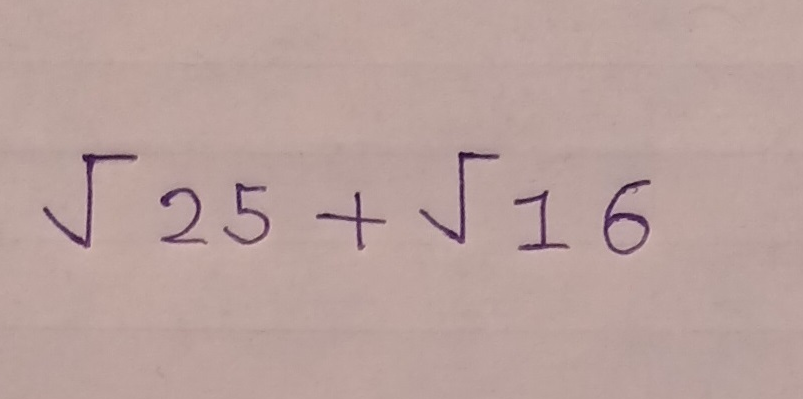 √25 + √16